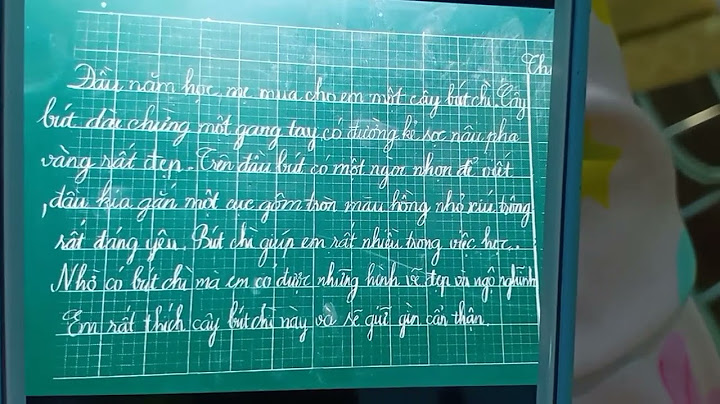 Th
Đầu năm học mẹ mua cho em một cây bút chì. Cây
bút dài chừng một gang tay có đường kẻ sọc nâu pha
vàng rất đẹp. Trên đầu bút có một ngòi nhọn để viết
, đầu kia gắn một cục gôm tròn màu hồng nhỏ xíu trông
rất đáng yêu. Bút chì giúp em rất nhiều trong việc học.
Nhờ có bút chì mà em có được những hình vẽ đẹp và ngộ nghĩnh
Em rất thích cây bút chì này và sẽ giữ gìn cẩn thận.